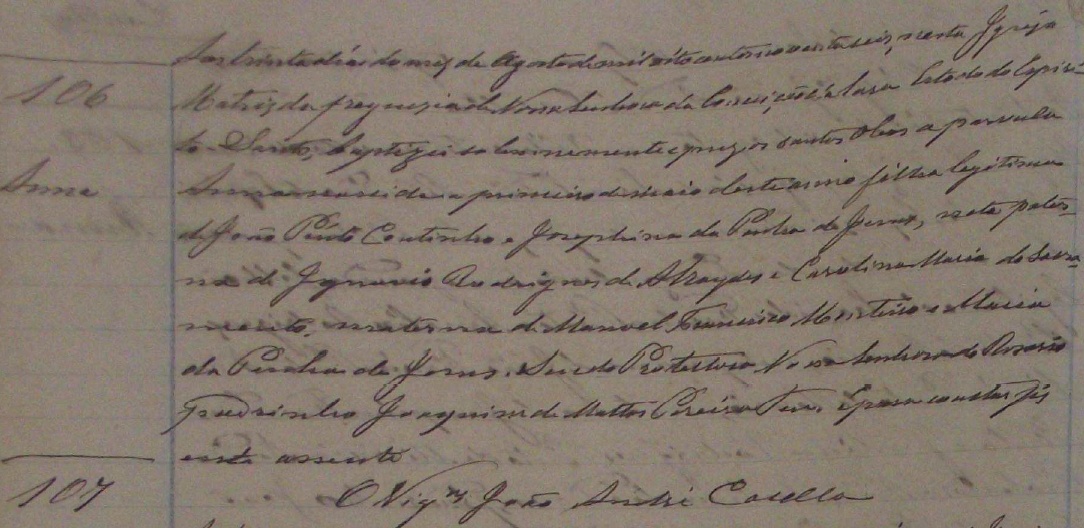 Aos trinta dias do mez de Agosto de mil oito centos noventa seis, nesta Igreja
106
Matriz da freguezia de Nossa Senhora da Conceição da Serra Estado do Espiri-
to Santo, baptizei solennemente e puz os santos Oleos a parvula
Anna
Anna nascida a primeiro de maio deste anno filha legitima
de João Pinto Coutinho e Josephina da Penha de Jesus, neta pater-
na de Ignacio Rodrigues de Atraydes e Carolina Maria do Sacra-
mento, materna de Manoel Francisco Monteiro e Maria
da Penha de Jesus. Sendo Protectora Nossa Senhora do Rosario
Padrinho Joaquim de Mattos Pereira E para constar fiz
este assento
107
O Vigro João André Casella